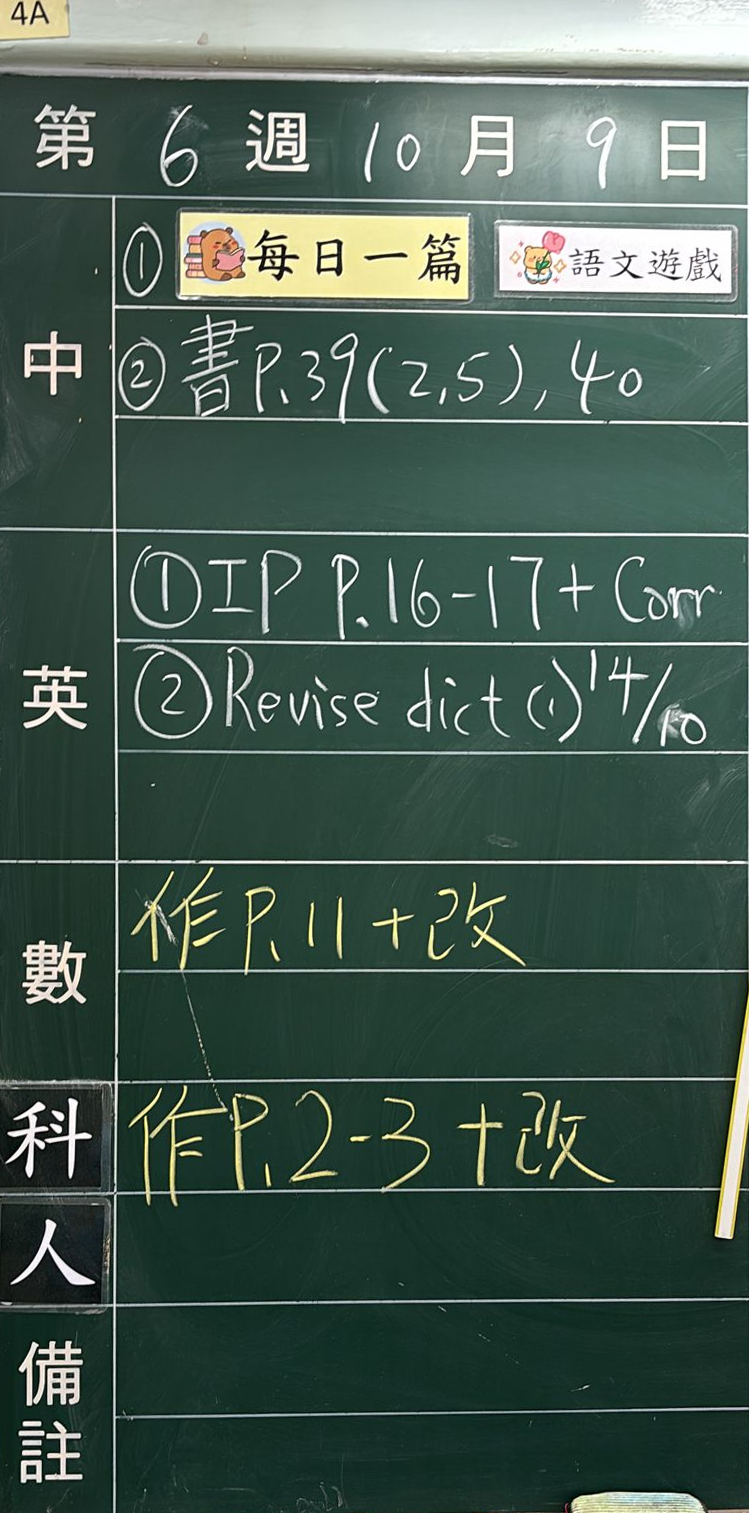 4A
第 6 週 10 月 9 日
中
① 每日一篇 語文遊戲
② 書P.39(2,5), 40
英
① IP P.16-17 + Corr
② Revise dict (1) 14/10
數
作P.11 + 改
科
作P.2-3 + 改
人
備註